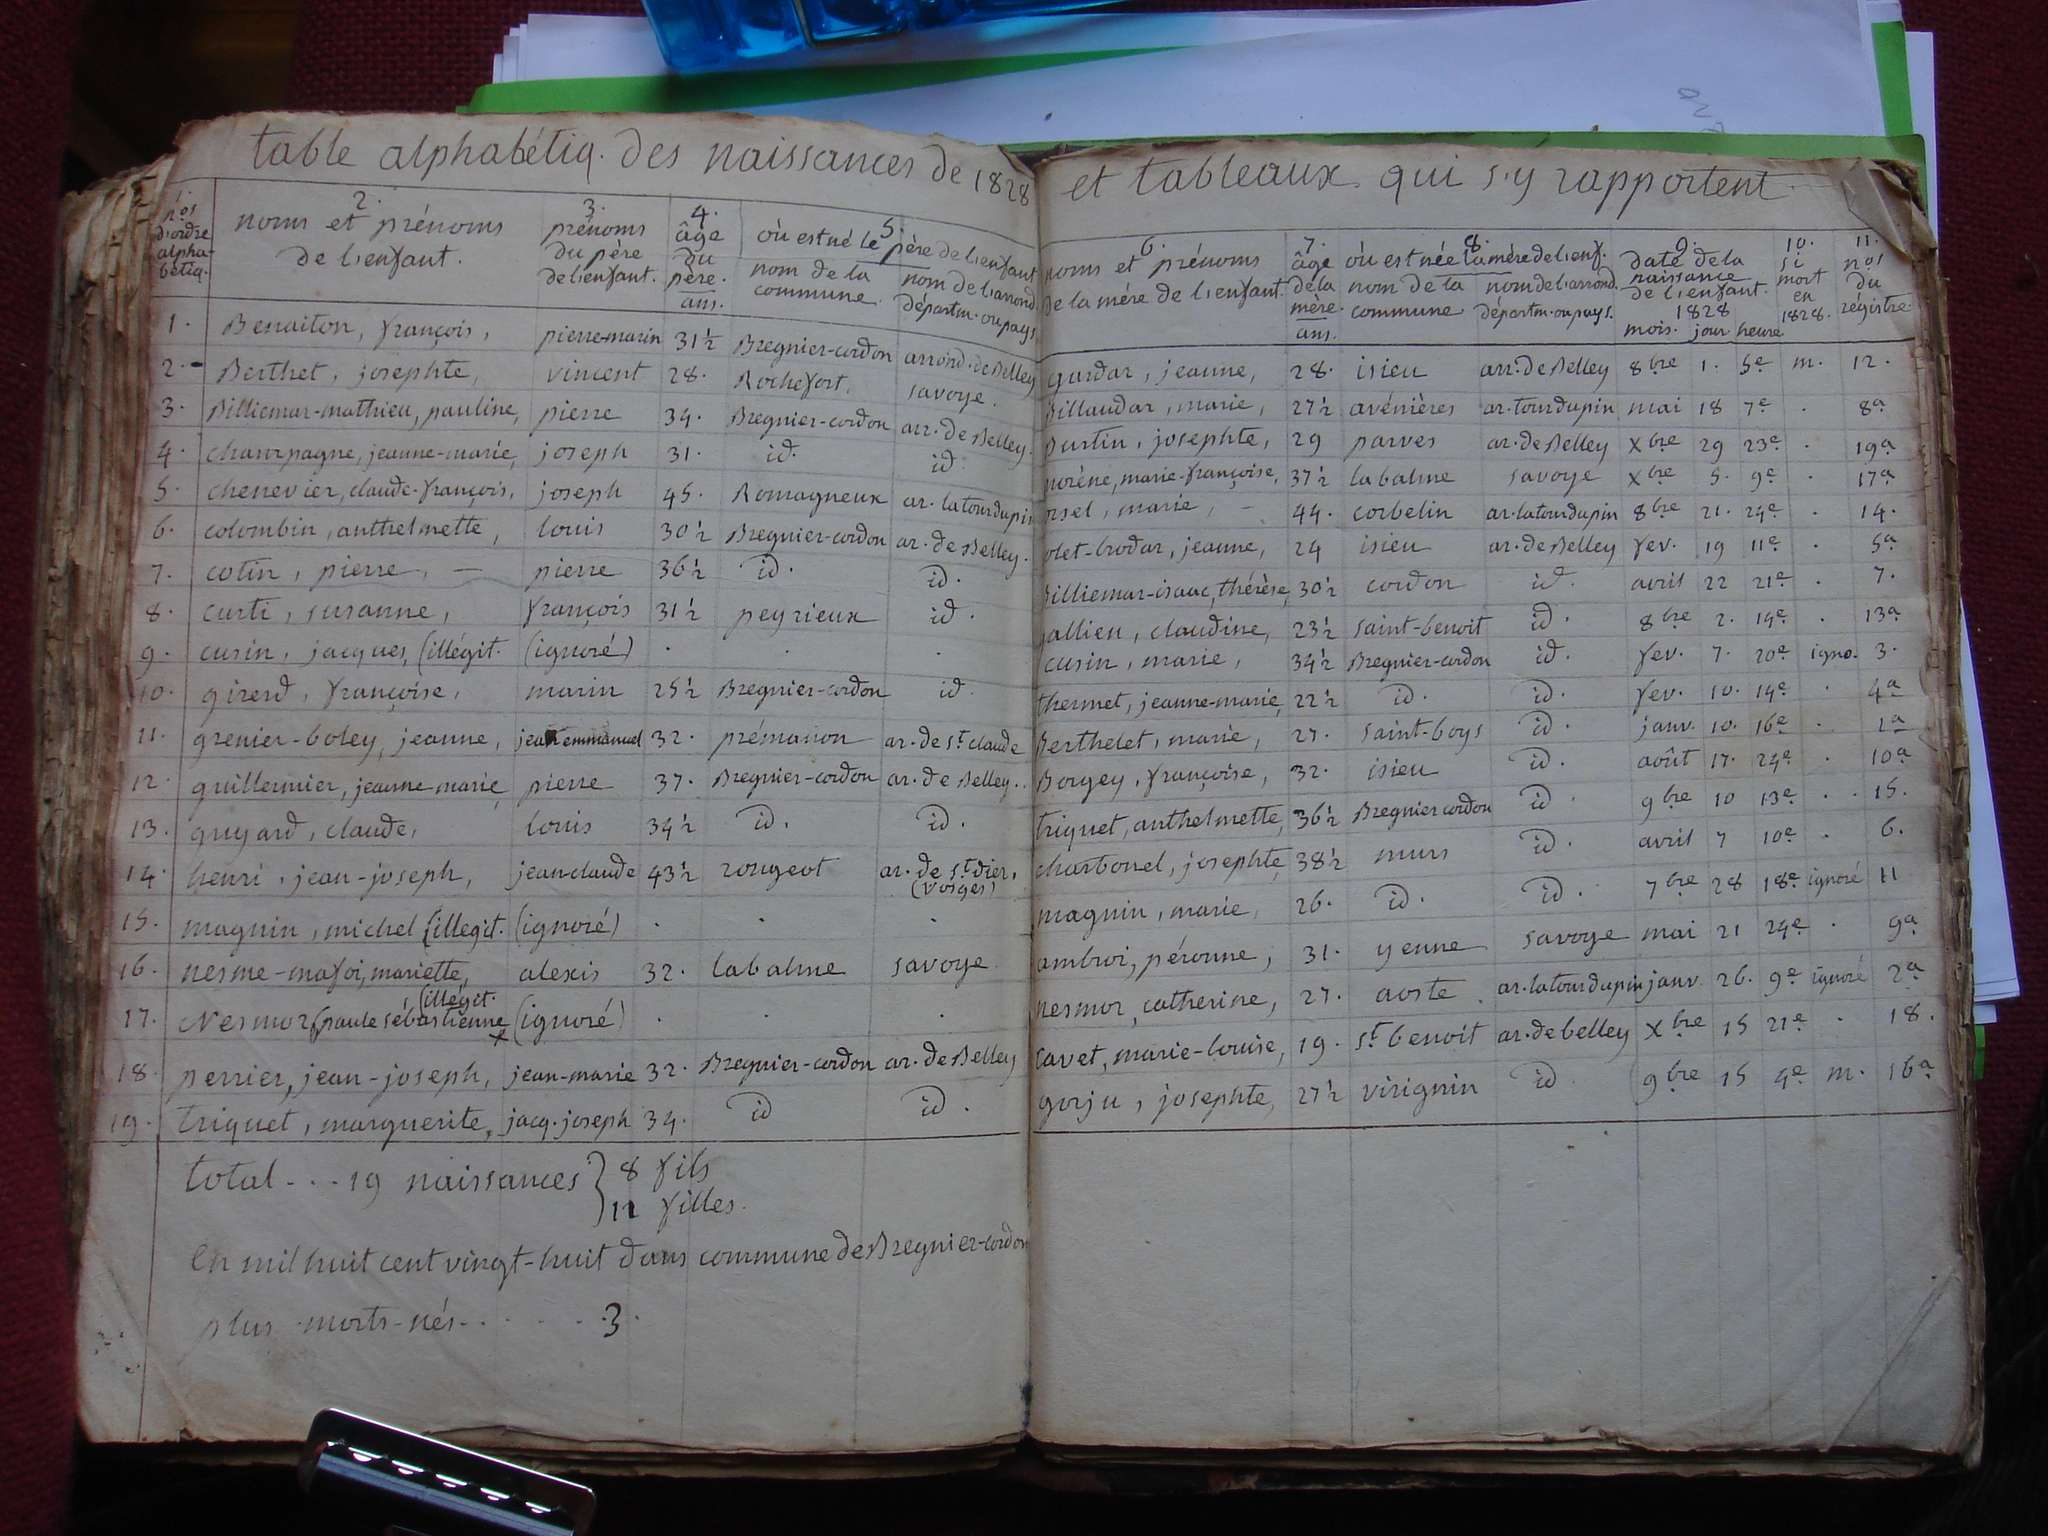 table alphabétiq. des naissances de 1828
nos d'ordre alphabétiq.
2. noms et prénoms de l'enfant.
3. prénoms du père de l'enfant.
4. âge du père. ans.
5. où est né le père de l'enfant
nom de la commune.
nom de l'arrond. départm. ou pays
1. Benaiton, françois, pierre-marin 31½ Bregnier-cordon arrond. de Belley
2. Berthet, josephte, vincent 28. Rochefort, savoye.
3. Billiemar-mathieu, pauline, pierre 34. Bregnier-cordon arr. de Belley.
4. champagne, jeanne-marie, joseph 31. id. id.
5. chenevier, claude-françois, joseph 45. Romagneux ar. latourdupin
6. colombin, anthelmette, louis 30½ Bregnier-cordon ar. de Belley.
7. cotin, pierre, — pierre 36½ id. id.
8. curti, susanne, françois 31½ peyrieux id.
9. cusin, jacques, (illégit. (ignoré) . . .
10. girerd, françoise, marin 25½ Bregnier-cordon id.
11. grenier-boley, jeanne, jean emmanuel 32. prémanon ar. de st. claude
12. guillermier, jeanne marie, pierre 37. Bregnier-cordon ar. de Belley..
13. guyard, claude, louis 34½ id. id.
14. henri, jean-joseph, jean-claude 43½ rougeot ar. de st. dier, (vosges)
15. magnin, michel (illegit. (ignoré) . . .
16. nesme-mafoi, mariette, alexis 32. labalme savoye.
17. Nesmor, (paule sébastienne (illégit. (ignoré) . . .
18. perrier, jean-joseph, jean-marie 32. Bregnier-cordon ar. de Belley
19. triquet, marguerite, jacq. joseph 34. id id.
total ... 19 naissances } 8 fils
11 filles.
En mil huit cent vingt-huit dans commune de Bregnier-cordon
plus morts-nés . . . . . . 3.
et tableaux qui s'y rapportent
6. noms et prénoms de la mère de l'enfant.
7. âge de la mère. ans.
8. où est née la mère de l'enf.
nom de la commune
nom de l'arrond. départm. ou pays.
9. Date de la naissance de l'enfant. 1828 mois. jour heure
10. si mort en 1828.
11. nos du régistre.
gardar, jeanne, 28. isieu arr. de Belley 8bre 1. 5e m. 12.
Billaudar, marie, 27½ avénières ar. tourdupin mai 18 7e . 8a
Burtin, josephte, 29 parves ar. de Belley Xbre 29 23e . 19a
norène, marie-françoise, 37½ labalme savoye Xbre 5. 9e . 17a
orsel, marie, — 44. corbelin ar. latourdupin 8bre 21. 24e . 14.
olet-brodar, jeanne, 24 isieu ar. de Belley fev. 19 11e . 5a
Billiemar-isaac, thérèse, 30½ cordon id. avril 22 21e . 7.
gallien, claudine, 23½ saint-benoit id. 8bre 2. 14e . 13a
cusin, marie, 34½ Bregnier-cordon id. fev. 7. 20e igno. 3.
thermet, jeanne-marie, 22½ id. id. fev. 10. 14e . 4a
Berthelet, marie, 27. saint-boys id. janv. 10. 16e . 1a
Borgey, françoise, 32. isieu id. août 17. 24e . 10a
triquet, anthelmette, 36½ Bregnier cordon id. 9bre 10 13e . 15.
charbonel, josephte, 38½ murs id. avril 7 10e . 6.
magnin, marie, 26. id. id. 7bre 28 18e ignoré 11
ambroi, péronne, 31. yenne savoye mai 21 24e . 9a
nesmor, catherine, 27. aoste. ar. latourdupin janv. 26. 9e ignoré 2a
cavet, marie-louise, 19. st. benoit ar. de belley Xbre 15 21e . 18.
gorju, josephte, 27½ virignin id. 9bre 15 4e m. 16a